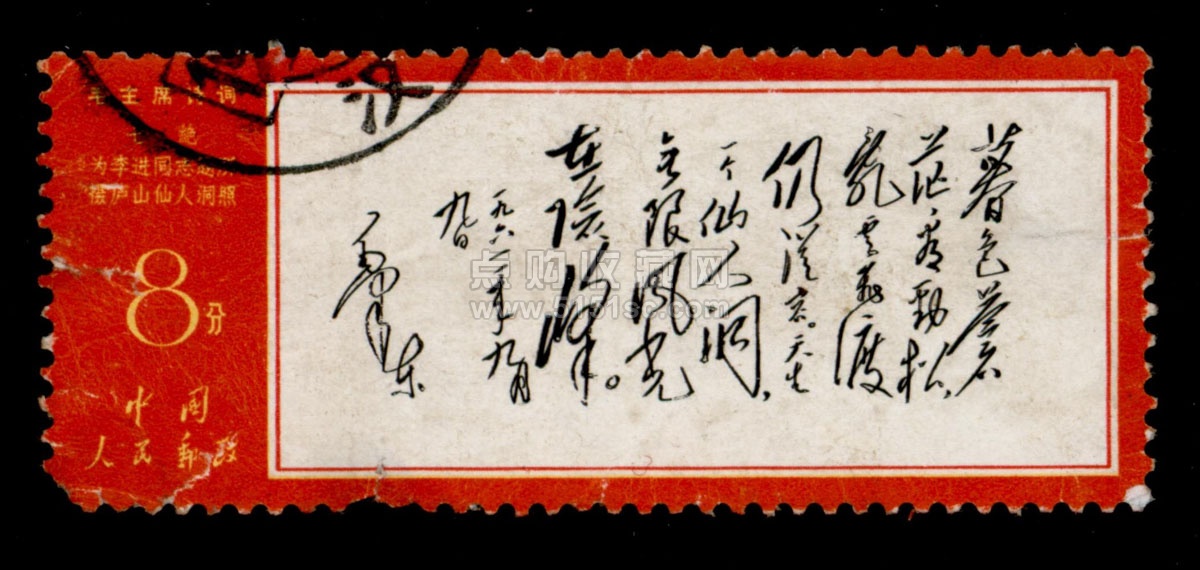 毛主席诗词
七绝
为李进同志题所
摄庐山仙人洞照
8分
中国
人民邮政
暮色苍
茫看劲松，
乱云飞渡
仍从容。天生
一个仙人洞，
无限风光
在险峰。
一九六一年九月
九日
毛泽东
汉
点购收藏网
www.5151sc.com